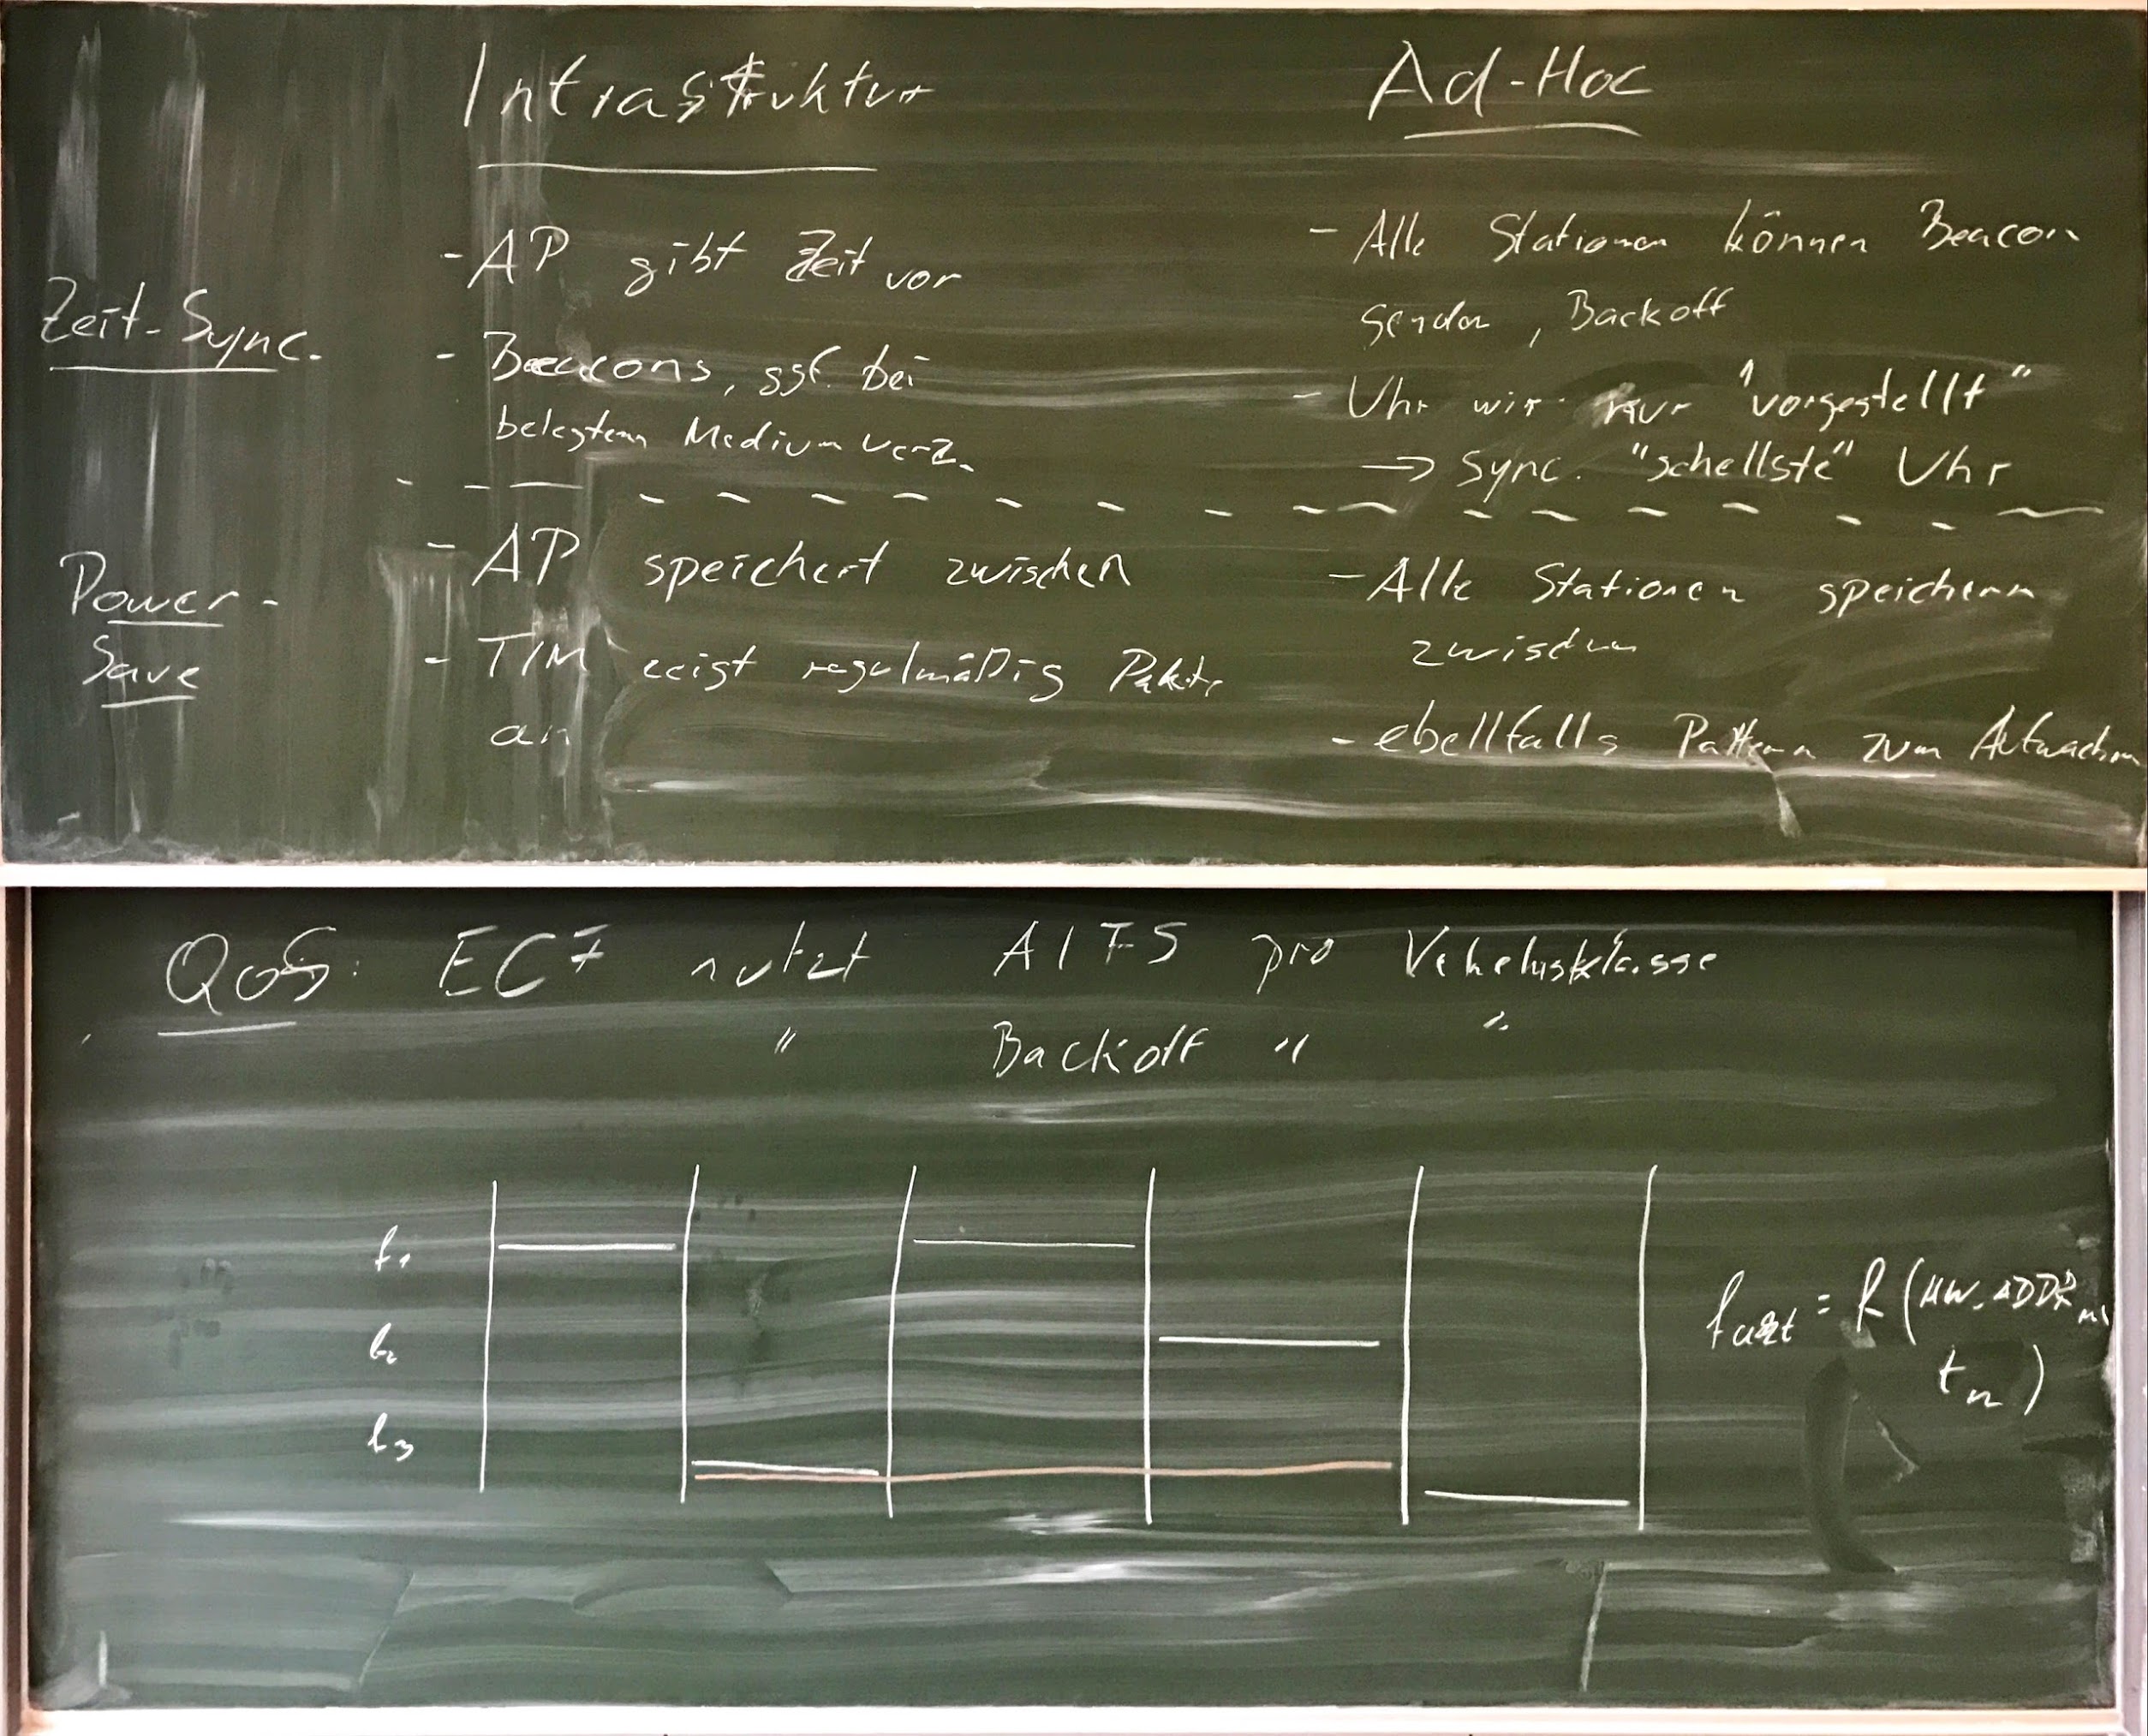 Infrastruktur
Ad-Hoc
Zeit-Sync.
- AP gibt Zeit vor
- Beacons, ggf. bei
belegtem Medium verz.
- Alle Stationen können Beacon
senden, Backoff
- Uhr wir nur "vorgestellt"
→ Sync. "schellste" Uhr
Power-
Save
- AP speichert zwischen
- TIM zeigt regulmäßig Pakete
an
- Alle Stationen speichern
zwischen
- ebellfalls Pattern zum Aufwachen
QoS: ECF nutzt AIFS pro Vekehrsklasse
" Backoff " "
f1
f2
f3
f = f (HW-ADDR m,
t n)